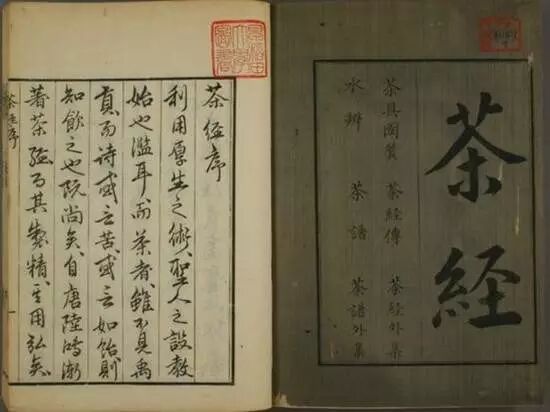 茶經
茶具圖贊 茶經傳 茶經外集
水辨 茶譜 茶譜外集
茶經序
利用厚生之術聖人之設教
始也濫耳而茶者雖不見禹
貢而詩或言苦或言如飴則
知飲之也既尚矣自唐陸鴻漸
著茶經而其製精其用弘矣
茶經序 一